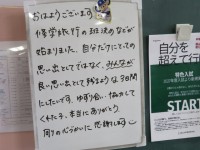 おはようございます。
修学旅行の班決めなどが
始まりました。自分だけにとっての
思い出としてではなく、みんなが
良い思い出として残るような3日間
にしたいです。ゆずり合い・協力して
くれた子、本当にありがとう。
周りの人の行動に感謝します。
自分を
超えて行
特色入試
START